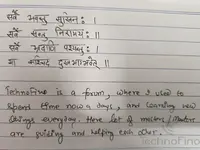 सर्वे भवन्तु सुखिनः ।
सर्वे सन्तु निरामयः ॥
सर्वे भद्राणि पश्यन्तु ।
मा कश्चिद् दुःखभाग्भवेत् ॥
TechnoFino is a forum, where I used to
spend time now a days, and learning new
things everyday. Here lot of masters/mentors
are guiding and helping each other.